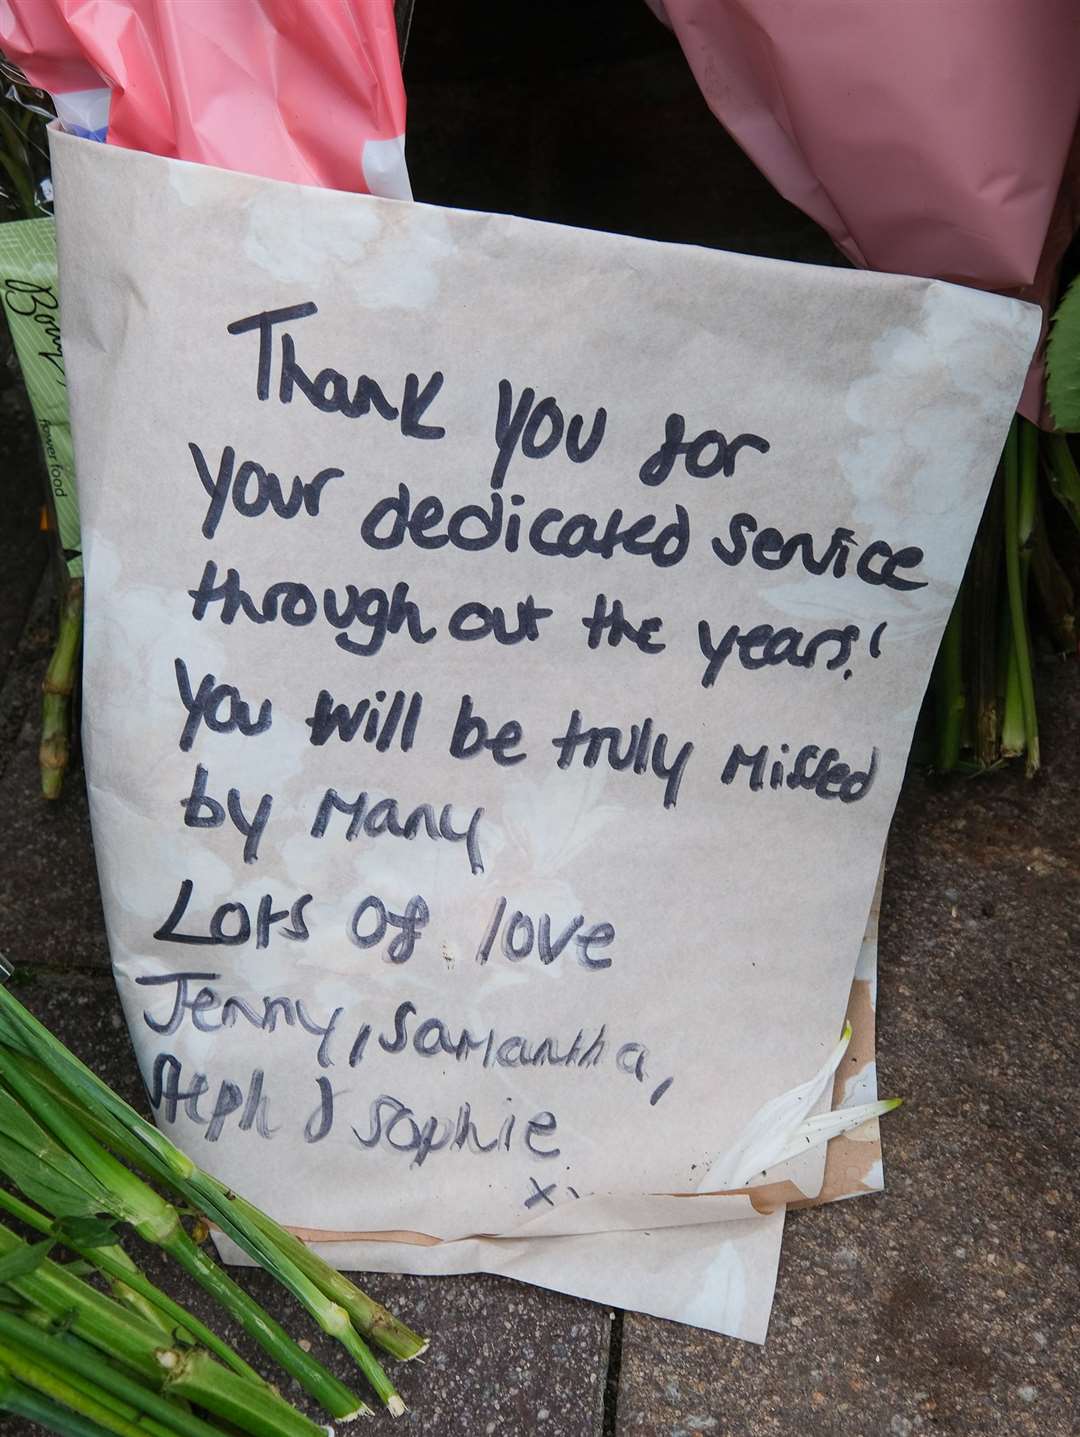 Thank you for
your dedicated service
through out the years!
You will be truly missed
by many
Lots of love
Jenny, Samantha,
Steph & Sophie
x
flower food